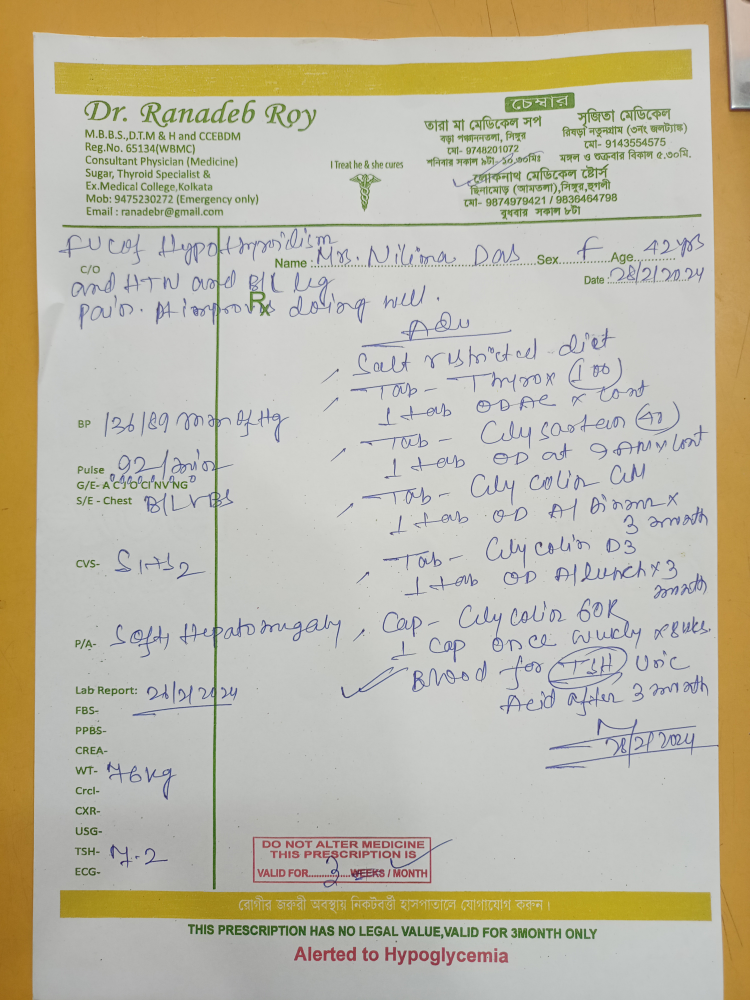 Dr. Ranadeb Roy
M.B.B.S.,D.T.M & H and CCEBDM
Reg.No. 65134(WBMC)
Consultant Physician (Medicine)
Sugar, Thyroid Specialist &
Ex.Medical College,Kolkata
Mob: 9475230272 (Emergency only)
Email : ranadebr@gmail.com
I Treat he & she cures
চেম্বার
তারা মা মেডিকেল সপ
বড়া পঞ্চাননতলা, সিঙ্গুর
মো- 9748201072
শনিবার সকাল ৯টা- ১০.৩০মিঃ
সুজিতা মেডিকেল
রিষড়া নতুনগ্রাম (৩নং জলট্যাঙ্ক)
মো- 9143554575
মঙ্গল ও শুক্রবার বিকাল ৫.৩০মি.
লোকনাথ মেডিকেল ষ্টোর্স
ছিনামোড় (আমতলা),সিঙ্গুর,হুগলী
মো- 9874979421 / 9836464798
বুধবার সকাল ৮টা
Name : Mrs. Nilima Das Sex F Age 42 yrs
Date : 28/2/2024
C/O
FUC of Hypothyroidism
and HTN and B/L leg
pain. Pt improves doing well.
Rx
Adv
Salt restricted diet
Tab - Thyrox 100
1 tab OD AC x cont
Tab - 40
1 tab OD at 9 AM x cont
Tab -
1 tab OD A/ Dinner x
3 month
Tab - D3
1 tab OD A/ Lunch x 3
month
Cap - 60K
1 Cap once weekly x 8 wks.
Blood for TSH Uric
Acid after 3 month
28/2/2024
BP 136/89 mm of Hg
Pulse 92/min
G/E- A C J O C I NV NG
S/E - Chest B/L VBS
CVS- S1+S2
P/A- Soft, Hepatomegaly
Lab Report:
FBS-
PPBS-
CREA-
WT- 76 kg
Crcl-
CXR-
USG-
TSH- 7.2
ECG-
DO NOT ALTER MEDICINE
THIS PRESCRIPTION IS
VALID FOR......3......WEEKS / MONTH
রোগীর জরুরী অবস্থায় নিকটবর্তী হাসপাতালে যোগাযোগ করুন।
THIS PRESCRIPTION HAS NO LEGAL VALUE,VALID FOR 3MONTH ONLY
Alerted to Hypoglycemia